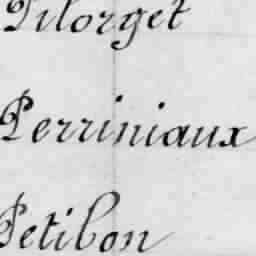 Pilorget
Perriniaux
Petibon